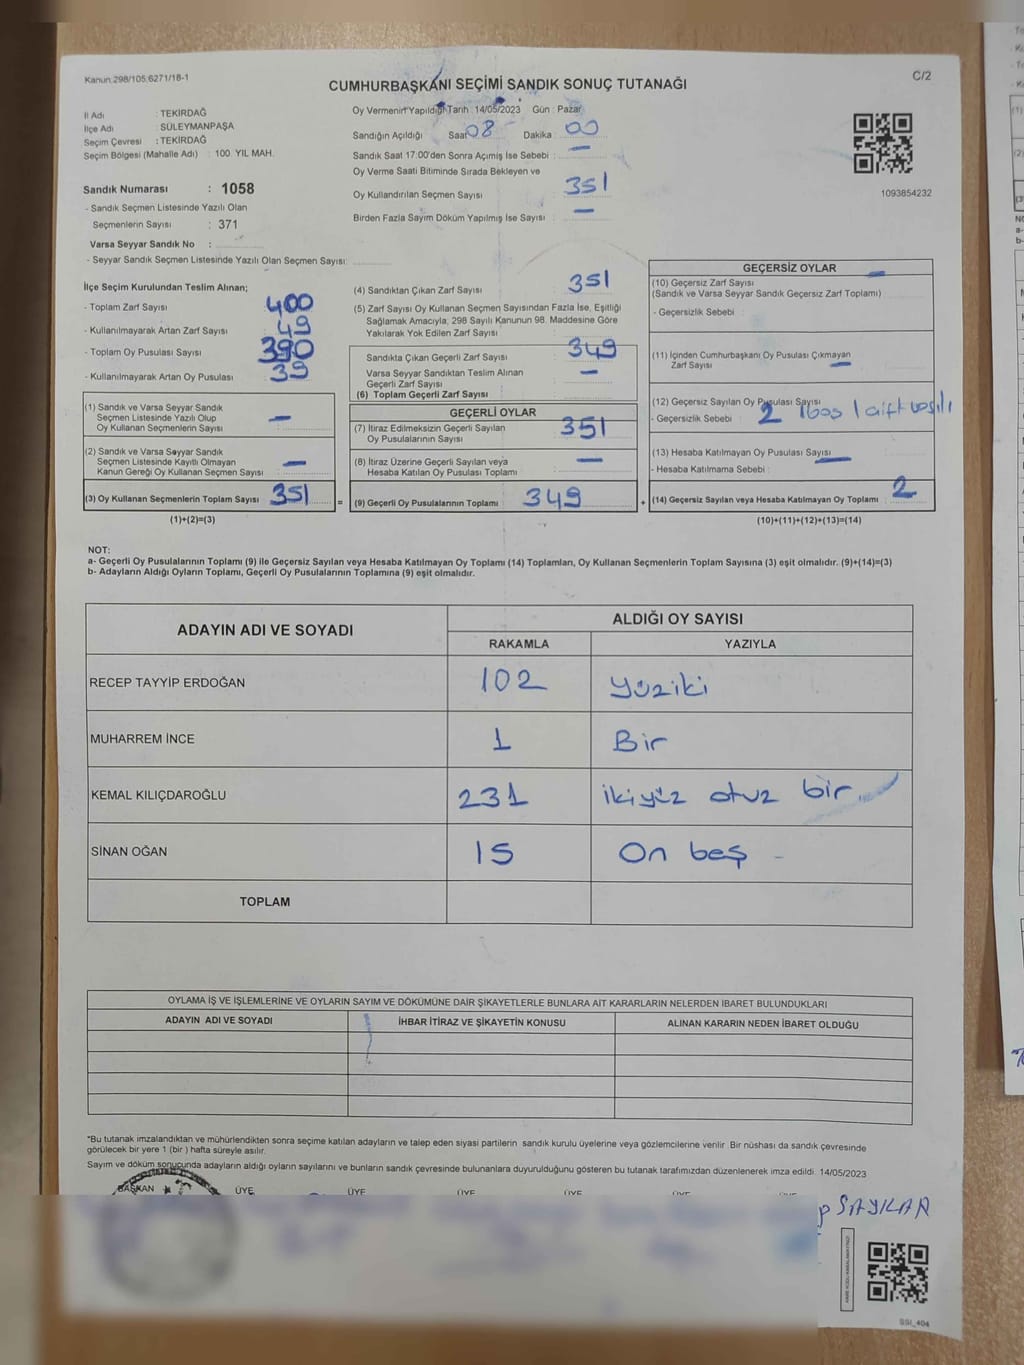 Kanun:298/105;6271/18-1
C/2
CUMHURBAŞKANI SEÇİMİ SANDIK SONUÇ TUTANAĞI
İl Adı : TEKİRDAĞ
İlçe Adı : SÜLEYMANPAŞA
Seçim Çevresi : TEKİRDAĞ
Seçim Bölgesi (Mahalle Adı) : 100. YIL MAH.
Sandık Numarası : 1058
- Sandık Seçmen Listesinde Yazılı Olan
Seçmenlerin Sayısı : 371
Varsa Seyyar Sandık No :
- Seyyar Sandık Seçmen Listesinde Yazılı Olan Seçmen Sayısı:
Oy Vermenin Yapıldığı Tarih : 14/05/2023 Gün : Pazar
Sandığın Açıldığı Saat 08 Dakika : 00
Sandık Saat 17:00'den Sonra Açımış İse Sebebi : —
Oy Verme Saati Bitiminde Sırada Bekleyen ve
Oy Kullandırılan Seçmen Sayısı : 351
Birden Fazla Sayım Döküm Yapılmış İse Sayısı : —
1093854232
İlçe Seçim Kurulundan Teslim Alınan;
- Toplam Zarf Sayısı : 400
- Kullanılmayarak Artan Zarf Sayısı : 49
- Toplam Oy Pusulası Sayısı : 390
- Kullanılmayarak Artan Oy Pusulası : 39
(1) Sandık ve Varsa Seyyar Sandık
Seçmen Listesinde Yazılı Olup
Oy Kullanan Seçmenlerin Sayısı : —
(2) Sandık ve Varsa Seyyar Sandık
Seçmen Listesinde Kayıtlı Olmayan
Kanun Gereği Oy Kullanan Seçmen Sayısı : —
(3) Oy Kullanan Seçmenlerin Toplam Sayısı : 351
(1)+(2)=(3)
(4) Sandıktan Çıkan Zarf Sayısı : 351
(5) Zarf Sayısı Oy Kullanan Seçmen Sayısından Fazla İse, Eşitliği
Sağlamak Amacıyla, 298 Sayılı Kanunun 98. Maddesine Göre
Yakılarak Yok Edilen Zarf Sayısı :
Sandıkta Çıkan Geçerli Zarf Sayısı : 349
Varsa Seyyar Sandıktan Teslim Alınan
Geçerli Zarf Sayısı : —
(6) Toplam Geçerli Zarf Sayısı :
GEÇERLİ OYLAR
(7) İtiraz Edilmeksizin Geçerli Sayılan
Oy Pusulalarının Sayısı : 351
(8) İtiraz Üzerine Geçerli Sayılan veya
Hesaba Katılan Oy Pusulası Toplamı : —
= (9) Geçerli Oy Pusulalarının Toplamı : 349
GEÇERSİZ OYLAR —
(10) Geçersiz Zarf Sayısı
(Sandık ve Varsa Seyyar Sandık Geçersiz Zarf Toplamı) :
- Geçersizlik Sebebi :
(11) İçinden Cumhurbaşkanı Oy Pusulası Çıkmayan
Zarf Sayısı : —
(12) Geçersiz Sayılan Oy Pusulası Sayısı
- Geçersizlik Sebebi : 2 1boş 1 çift basılı
(13) Hesaba Katılmayan Oy Pusulası Sayısı —
- Hesaba Katılmama Sebebi :
+ (14) Geçersiz Sayılan veya Hesaba Katılmayan Oy Toplamı : 2
(10)+(11)+(12)+(13)=(14)
NOT:
a- Geçerli Oy Pusulalarının Toplamı (9) ile Geçersiz Sayılan veya Hesaba Katılmayan Oy Toplamı (14) Toplamları, Oy Kullanan Seçmenlerin Toplam Sayısına (3) eşit olmalıdır. (9)+(14)=(3)
b- Adayların Aldığı Oyların Toplamı, Geçerli Oy Pusulalarının Toplamına (9) eşit olmalıdır.
ADAYIN ADI VE SOYADI ALDIĞI OY SAYISI
RAKAMLA YAZIYLA
RECEP TAYYİP ERDOĞAN 102 Yüziki
MUHARREM İNCE 1 Bir
KEMAL KILIÇDAROĞLU 231 ikiyüz otuz bir
SİNAN OĞAN 15 On beş -
TOPLAM
OYLAMA İŞ VE İŞLEMLERİNE VE OYLARIN SAYIM VE DÖKÜMÜNE DAİR ŞİKAYETLERLE BUNLARA AİT KARARLARIN NELERDEN İBARET BULUNDUKLARI
ADAYIN ADI VE SOYADI İHBAR İTİRAZ VE ŞİKAYETİN KONUSU ALINAN KARARIN NEDEN İBARET OLDUĞU
*Bu tutanak imzalandıktan ve mühürlendikten sonra seçime katılan adayların ve talep eden siyasi partilerin sandık kurulu üyelerine veya gözlemcilerine verilir. Bir nüshası da sandık çevresinde
görülecek bir yere 1 (bir ) hafta süreyle asılır.
Sayım ve döküm sonucunda adayların aldığı oyların sayılarını ve bunların sandık çevresinde bulunanlara duyurulduğunu gösteren bu tutanak tarafımızdan düzenlenerek imza edildi. 14/05/2023
BAŞKAN ÜYE ÜYE ÜYE ÜYE ÜYE ÜYE
SAYILAR
SSI_404